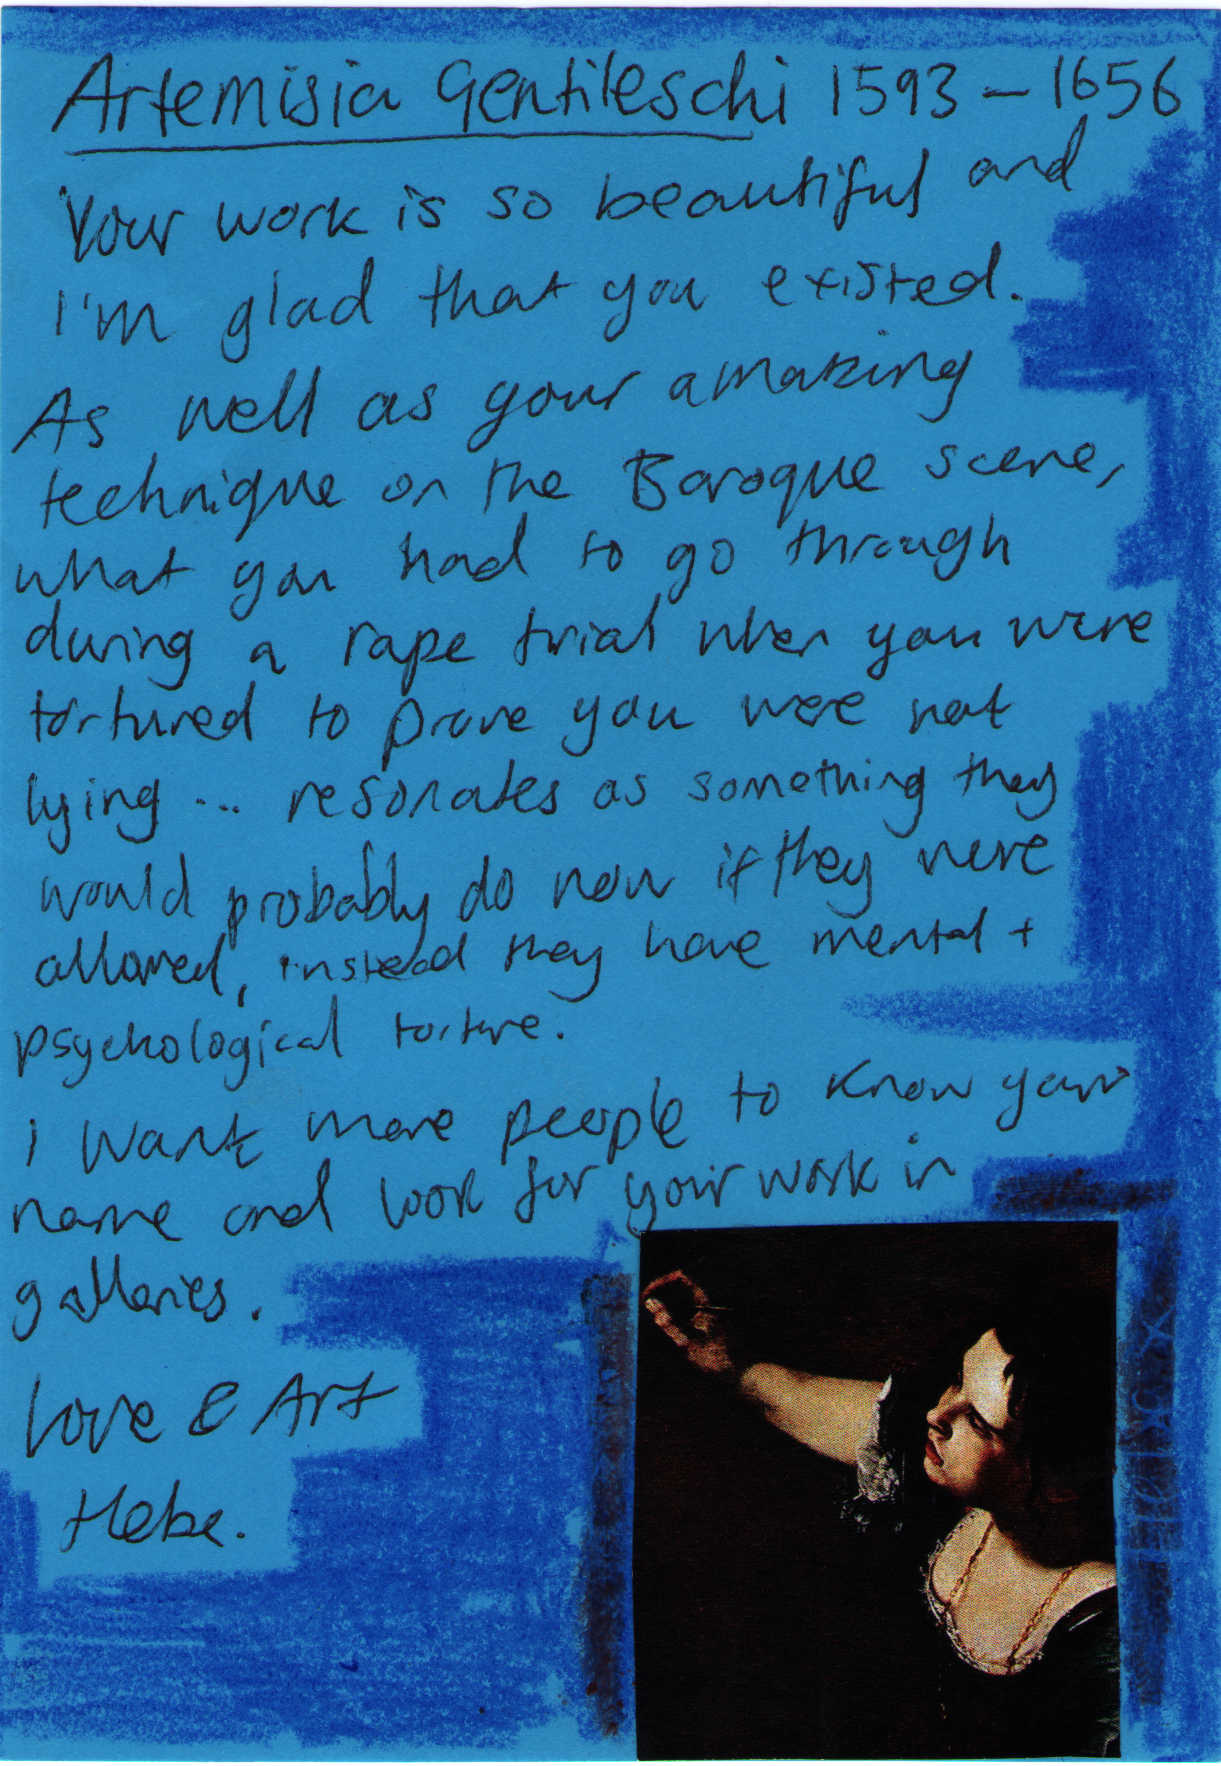 Artemisia Gentileschi 1593 - 1656
Your work is so beautiful and
I'm glad that you existed.
As well as your amazing
technique on the Baroque scene,
what you had to go through
during a rape trial when you were
tortured to prove you were not
lying ... resonates as something they
would probably do now if they were
allowed, instead they have mental +
psychological torture.
I want more people to know your
name and look for your work in
galleries.
Love & Art
Hebe.